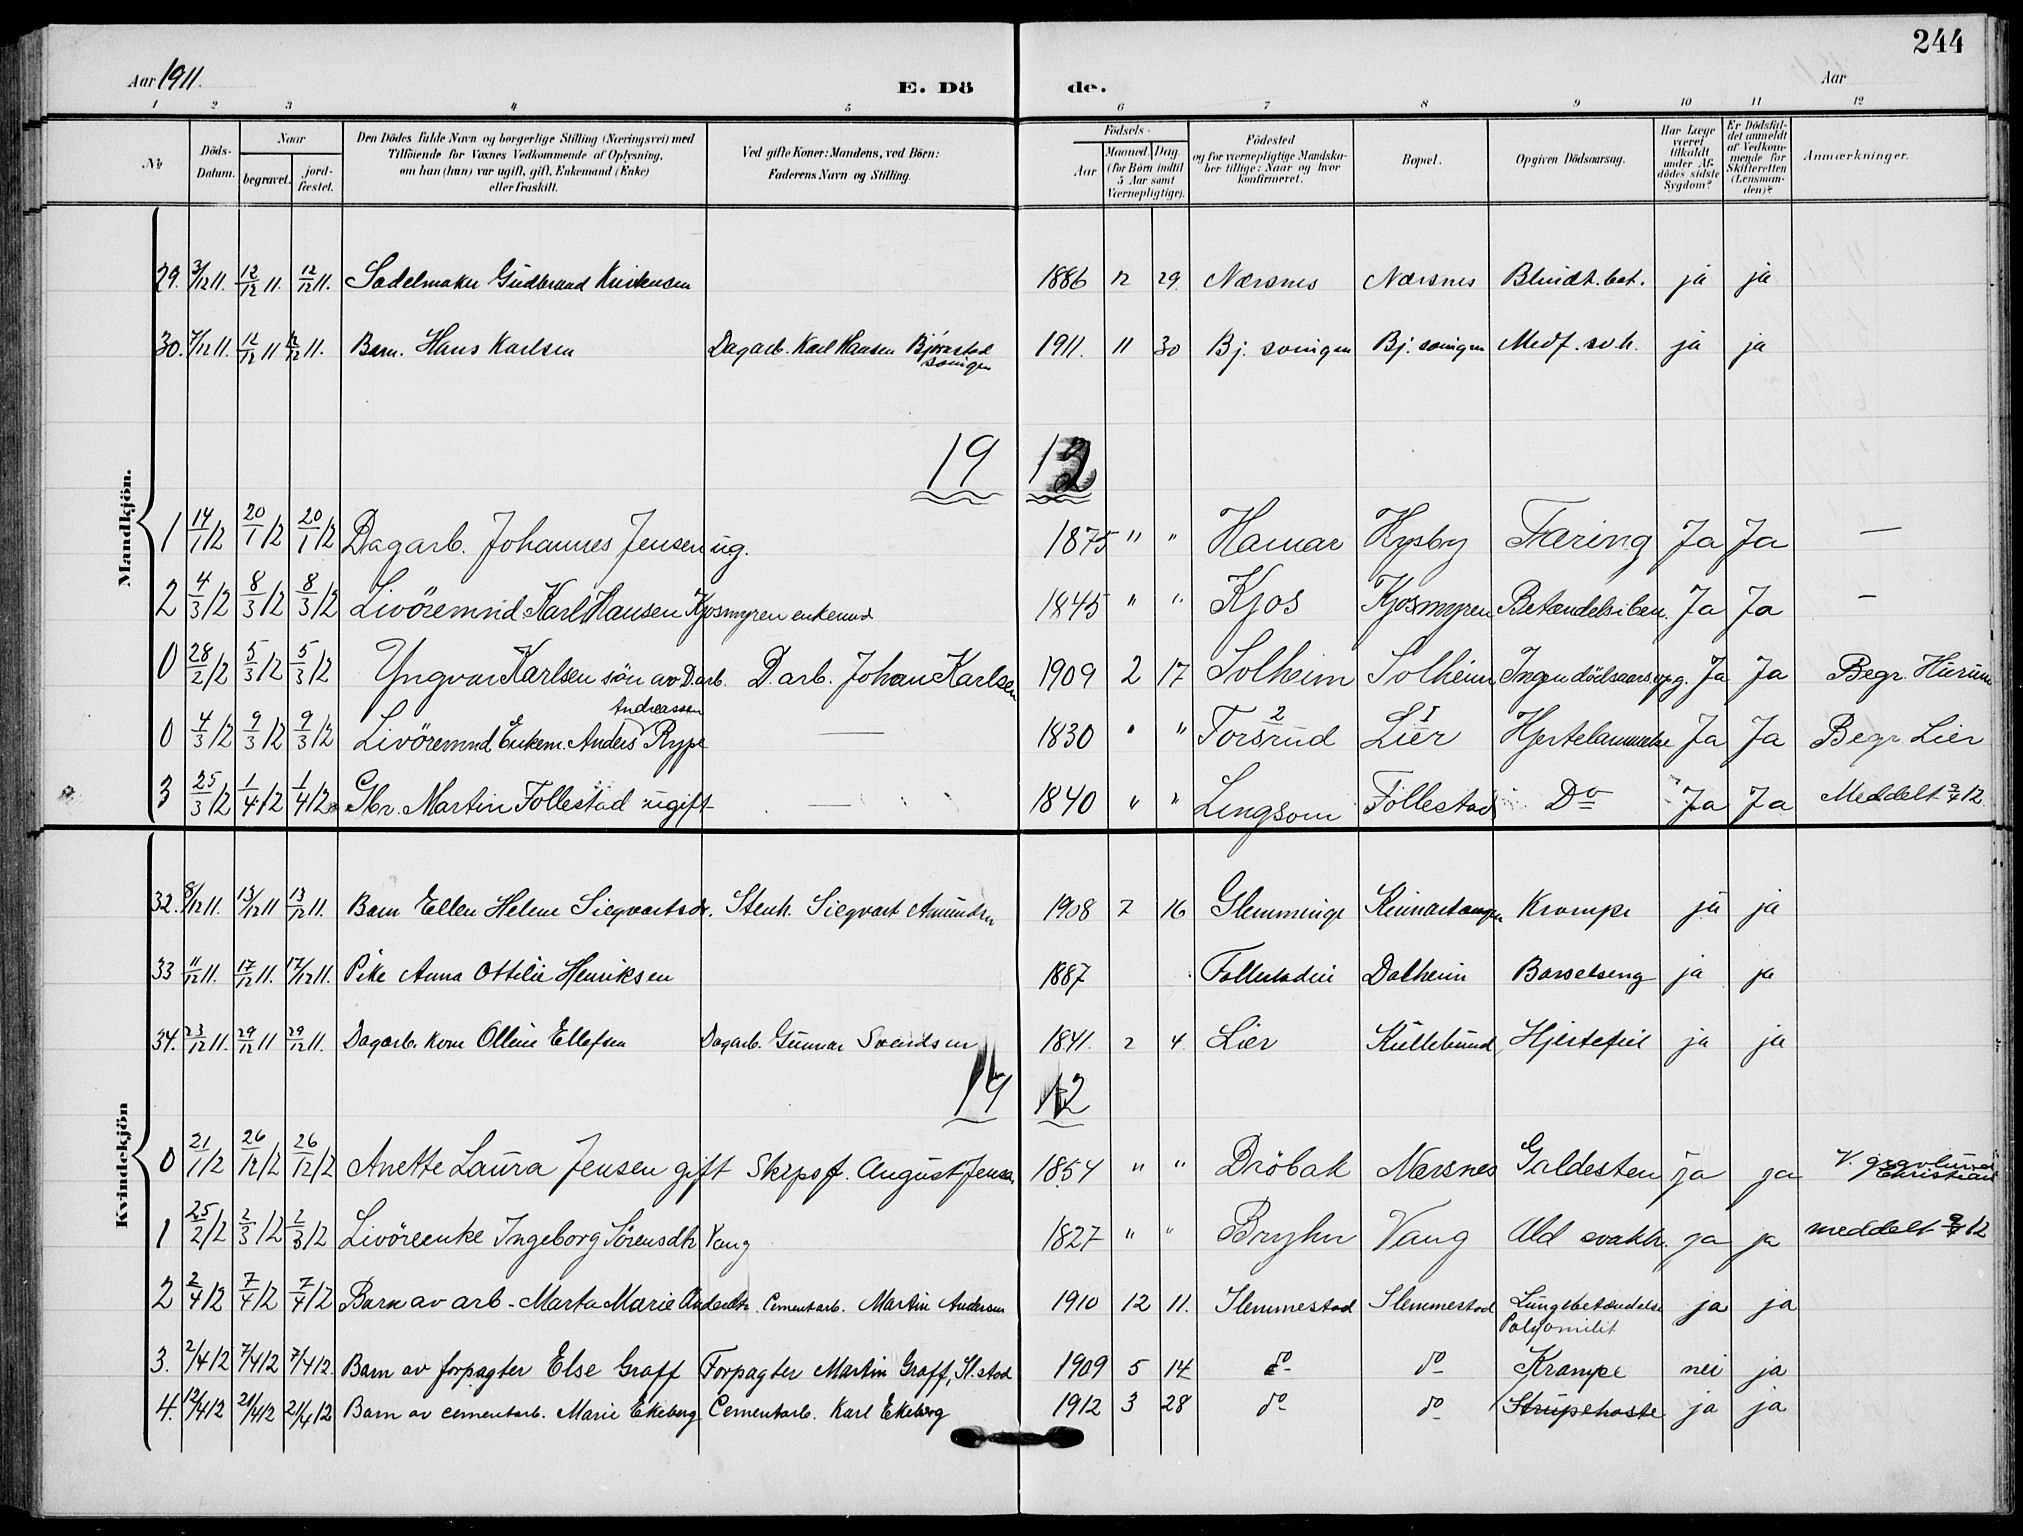 244
Aar 1911.
E. Dö de.
Aar
1 2 3 4 5 6 7 8 9 10 11 12
№
Döds-Datum.
Naar
begravet.
jord-fæstet.
Den Dödes fulde Navn og borgerlige Stilling (Næringsvei) med
Tilföiende for Voxnes Vedkommende af Oplysning,
om han (hun) var ugift, gift, Enkemand (Enke)
eller fraskilt.
Ved gifte Koner: Mandens, ved Börn:
Faderens Navn og Stilling.
Födsels-
Aar
Maaned. Dag.
(for Börn indtil
5 Aar samt
Værnepligtige).
Födested
og for værnepligtige Mandska-
ber tillige: Naar og hvor
konfirmeret.
Bopæl.
Opgiven Dödsaarsag.
Har Læge
været
tilkaldt
under Af-
dödes sidste
Sygdom?
Er Dödsfal-
det anmeldt
af Vedkom-
mende for
Skifteretten
(Lensman-
den)?
Anmærkninger.
Mandkjön.
29. 3/12 11. 12/12 11 12/12 11. Sadelmaker Gudbrand Kristensen 1886 12 29. Nærsnes Nærsnes Blindt.bet. ja ja
30. 7/12 11. 12/12 11 12/12 11. Barn. Hans Karlsen Dagarb. Karl Hansen Bjørnstad 1911. 11 30 Bj. svingen Bj. svingen Medf. svh. ja ja
svingen
19 12
1 14/1 12 20/1 12 20/1 12 Dagarb. Johannes Jensen ug. 1875 " " Hamar Hysby Tæring Ja Ja —
2 4/3 12 8/3 12 8/3 12 Livöremnd Karl Hansen Kjosmyren enkemd 1845 " " Kjos Kjosmyren Betændels i ben. Ja Ja —
0 28/2 12 5/3 12 5/3 12 Yngvar Karlsen sön av D.arb. D.arb. Johan Karlsen 1909 2 17 Solheim Solheim Ingen dödsaars opg. Ja Ja Begr. Hurum
Andreassen
0 4/3 12 9/3 12 9/3 12 Livöremnd Enkem. Anders Rype — 1830 " " Forsrud 2 Lier 1 Hjertelammelse Ja Ja Begr. Lier
3 25/3 12 1/4 12 1/4 12 Gbr. Martin Follestad ugift — 1840 " " Lingsom Follestad Do Ja Ja Meddelt 2/4 12
Kvindekjön
32. 8/12 11. 13/12 11 13/12 11. Barn Ellen Helene Siegvartsdr. Stenh. Siegvart Amundsen 1908 7 16 Glemminge Kinnartangen Krampe ja ja
33 11/12 11. 17/12 11. 17/12 11. Pike Anna Ottilie Henriksen 1887 Follestadeie Dalheim Barselseng ja ja
34. 23/12 11. 29/12 11 29/12 11. Dagarb. kone Olline Ellefsen Dagarb. Gunnar Svendsen 1841. 2 4. Lier Kullebund Hjertefeil ja ja
19 12
0 21/1 12 26/1 12 26/1 12 Anette Laura Jensen gift Skipsf. August Jensen 1854 " " Dröbak Nærsnes Galdesten ja ja V. gravlund Christian
1 25/2 12 2/3 12 2/3 12 Livöreenke Ingeborg Sörensdtr Vang 1827 " " Bryhn Vang Ald svakh. ja ja meddelt 2/4 12
2 2/4 12 7/4 12 7/4 12 Barn av arb. Marta Marie Andersdtr. Cementarb. Martin Andersen 1910 12 11. Slemmestad Slemmestad Lungebetændelse ja ja
Polyomilit
3. 2/4 12 7/4 12 7/4 12 Barn av forpagter Else Graff Forpagter Martin Graff, Sl.stad 1909 5 14 do do Krampe nei ja
4. 12/4 12 21/4 12 21/4 12 Barn av cementarb. Marie Ekeberg Cementarb. Karl Ekeberg 1912 3 28 do do Strupehoste ja ja